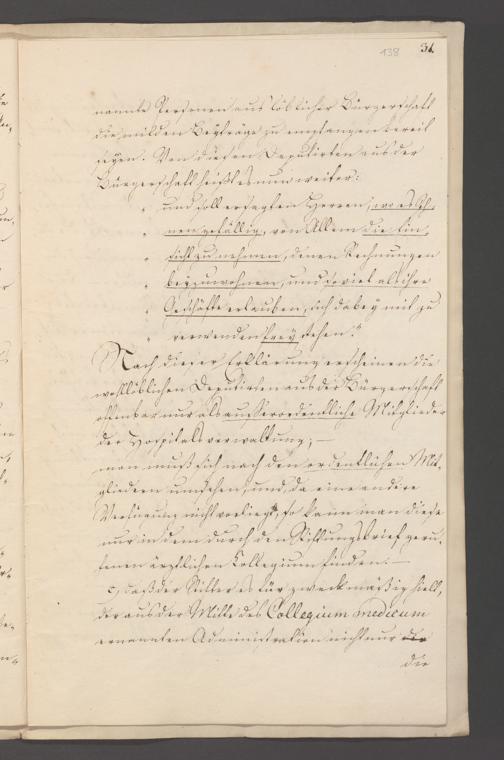 138 31.
nannte Personen aus löblicher Bürgerschaft
die milden Beyträge zu empfangen bereit
seyen. Von diesen Deputirten aus der
Bürgerschaft heißt es nun weiter:
„ und soll ersagten Herren, wo es Ih-
„ nen gefällig, von Allem die Ein-
„ sicht zu nehmen, denen Rechnungen
„ beyzuwohnen, und soviel als ihre
„ Geschäfte erlauben, sich dabey mit zu
„ verwenden frey stehen."
Nach dieser Erklärung erscheinen die
wohllöblichen Deputirten aus der Bürgerschaft
offenbar nur als ausserordentliche Mitglieder
der Hospitalsverwaltung; —
man muß sich nach den ordentlichen Mit-
gliedern umsehen, und, da eine andere
nicht vorliegt, so kann man diese
nur in dem durch den Stiftungsbrief geru-
fenen ärztlichen Kollegium finden. —
c, daß der Stifter es für zweckmäßig hielt,
der aus der Mitte des Collegium medicum
ernannten Administration nicht nur die
die